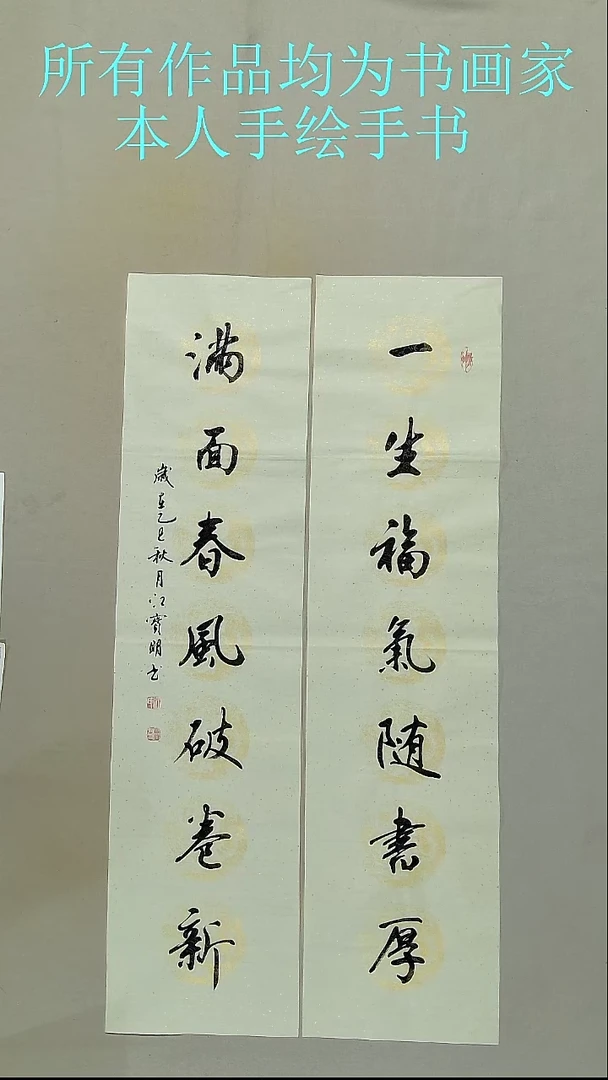 所有作品均为书画家
本人手绘手书
一生福氣随書厚
满面春風破卷新
歲在乙巳秋月江寶明书